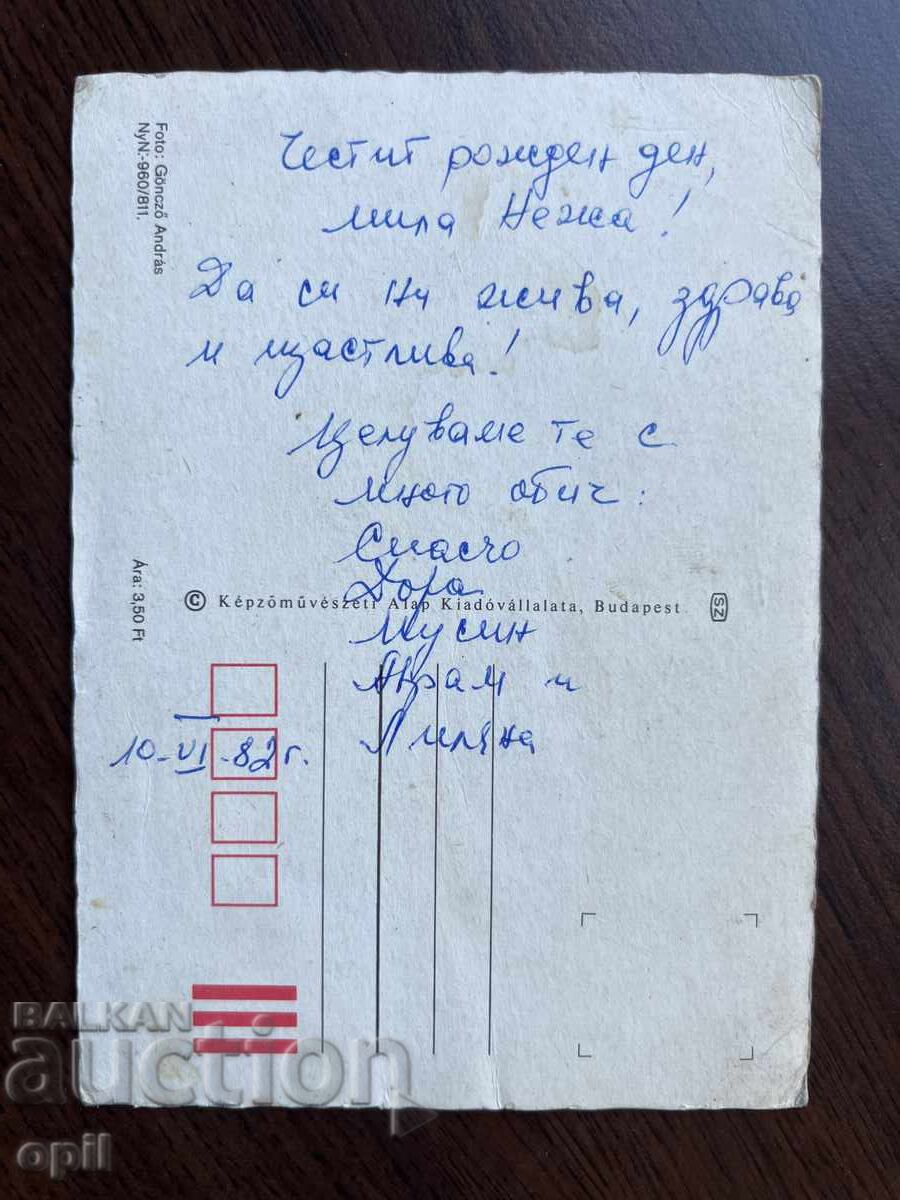 Foto: Gönczö András
NyN.-960/811.
Честит рожден ден,
мила Нежа!
Да си ни жива, здрава
и щастлива!
Целуваме те с
много обич:
Спасчо
Дора
Ára: 3,50 Ft
© Képzőművészeti Alap Kiadóvállalata, Budapest
SZ
Мусин
Аврам и
Лиляна
10-VI-82 г.
BALKAN
auction
opil